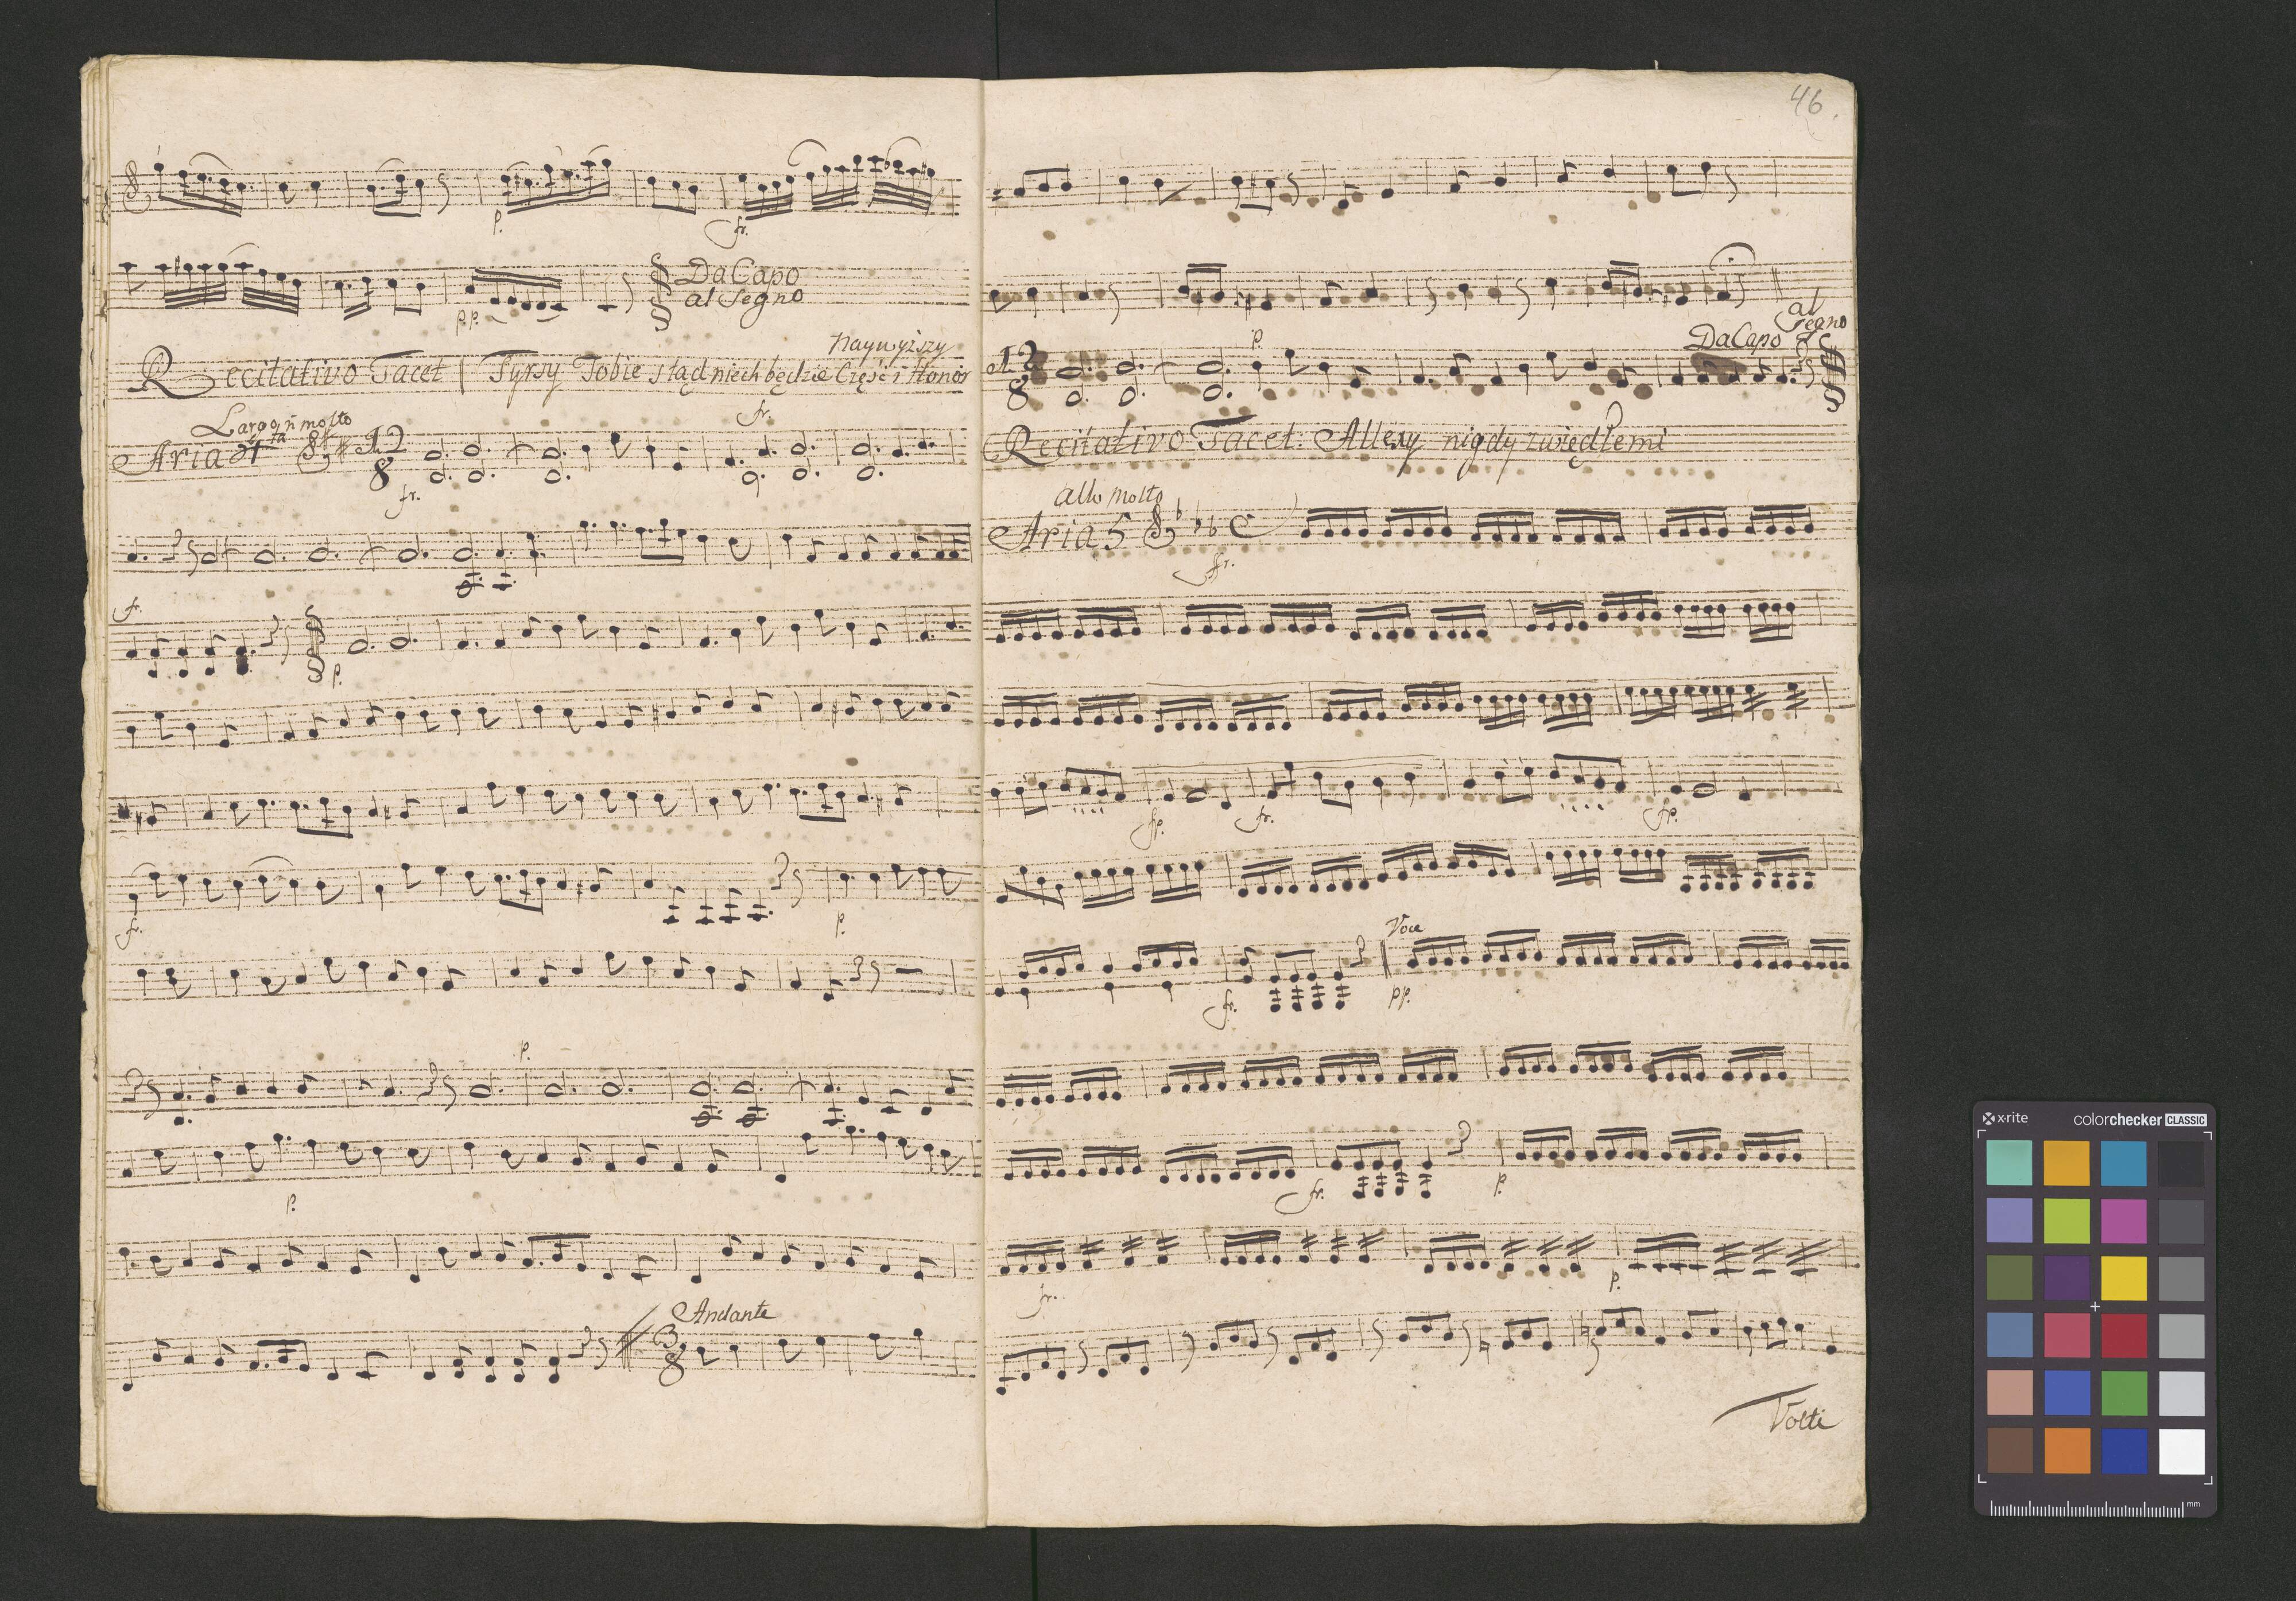 p.
fr.
pp.
Da Capo
al Segno
naywyiszy
Recitativo Tacet | Tyrsy Tobie stąd niech będzie Część i Honor
Largo, ñ molto
fr.
Aria 4ta 12
8
fr.
fr.
p.
fr.
p.
p.
p.
Andante
3
8
46.
al
Segno
p.
Da Capo
12
8
Recitativo Tacet. Allexy nigdy zwiędłemi
allo molto
Aria 5 C
fr.
fp.
fr.
fp.
Voce
fr.
pp.
fr.
p.
fr.
p.
Volti
x-rite
colorchecker CLASSIC
mm